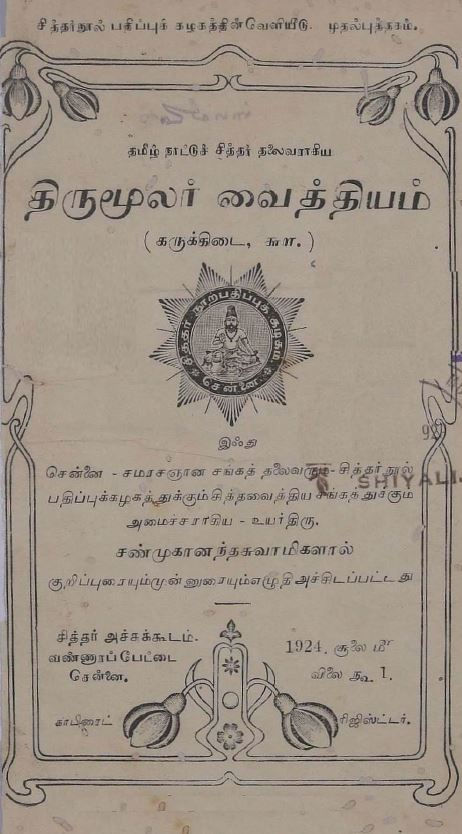 சித்தர்நூல் பதிப்புக் கழகத்தின்வெளியீடு. முதல்புத்தகம்.
தமிழ் நாட்டுச் சித்தர் தலைவராகிய
திருமூலர் வைத்தியம்
(கருக்கிடை, ௬௱.)
சித்தர் நூற்பதிப்புக் கழகம்
சென்னை
இஃது
சென்னை - சமரசஞான சங்கத் தலைவரும் - சித்தர்நூல்
பதிப்புக்கழகத்துக்கும் சித்தவைத்திய சங்கத்துக்கும்
அமைச்சராகிய - உயர்திரு.
SHIYALI.
சண்முகானந்தசுவாமிகளால்
குறிப்புரையும்முன்னுரையும்எழுதி அச்சிடப்பட்டது
சித்தர் அச்சுக்கூடம்.
வண்ணாரப்பேட்டை
சென்னை.
1924. சூலை மீ
விலை ரூ 1.
காபிரைட்
ரிஜிஸ்டர்.